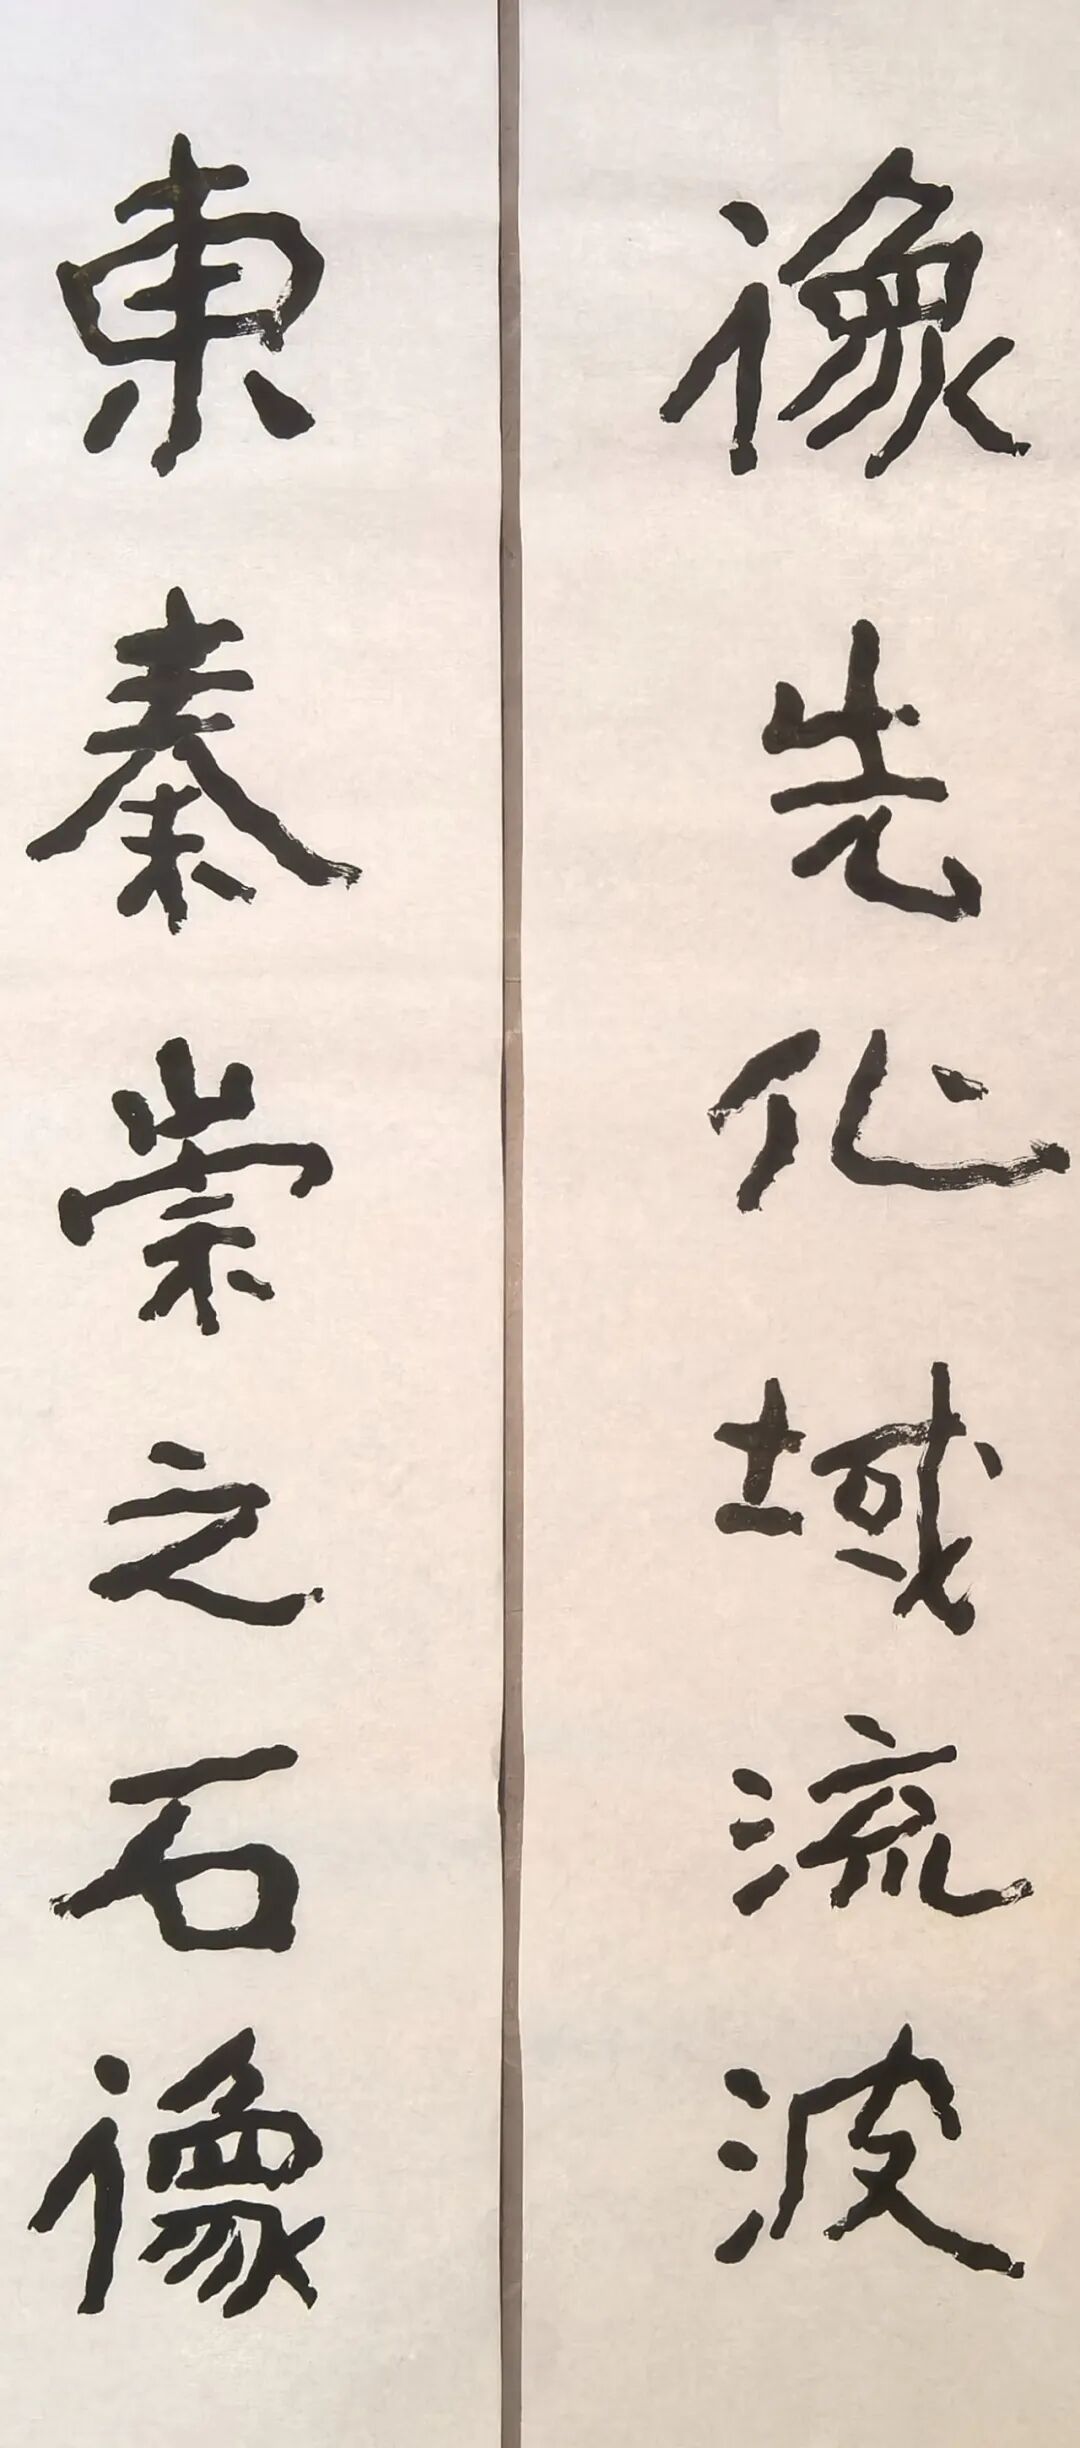 像先化域流波
東秦崇之石像